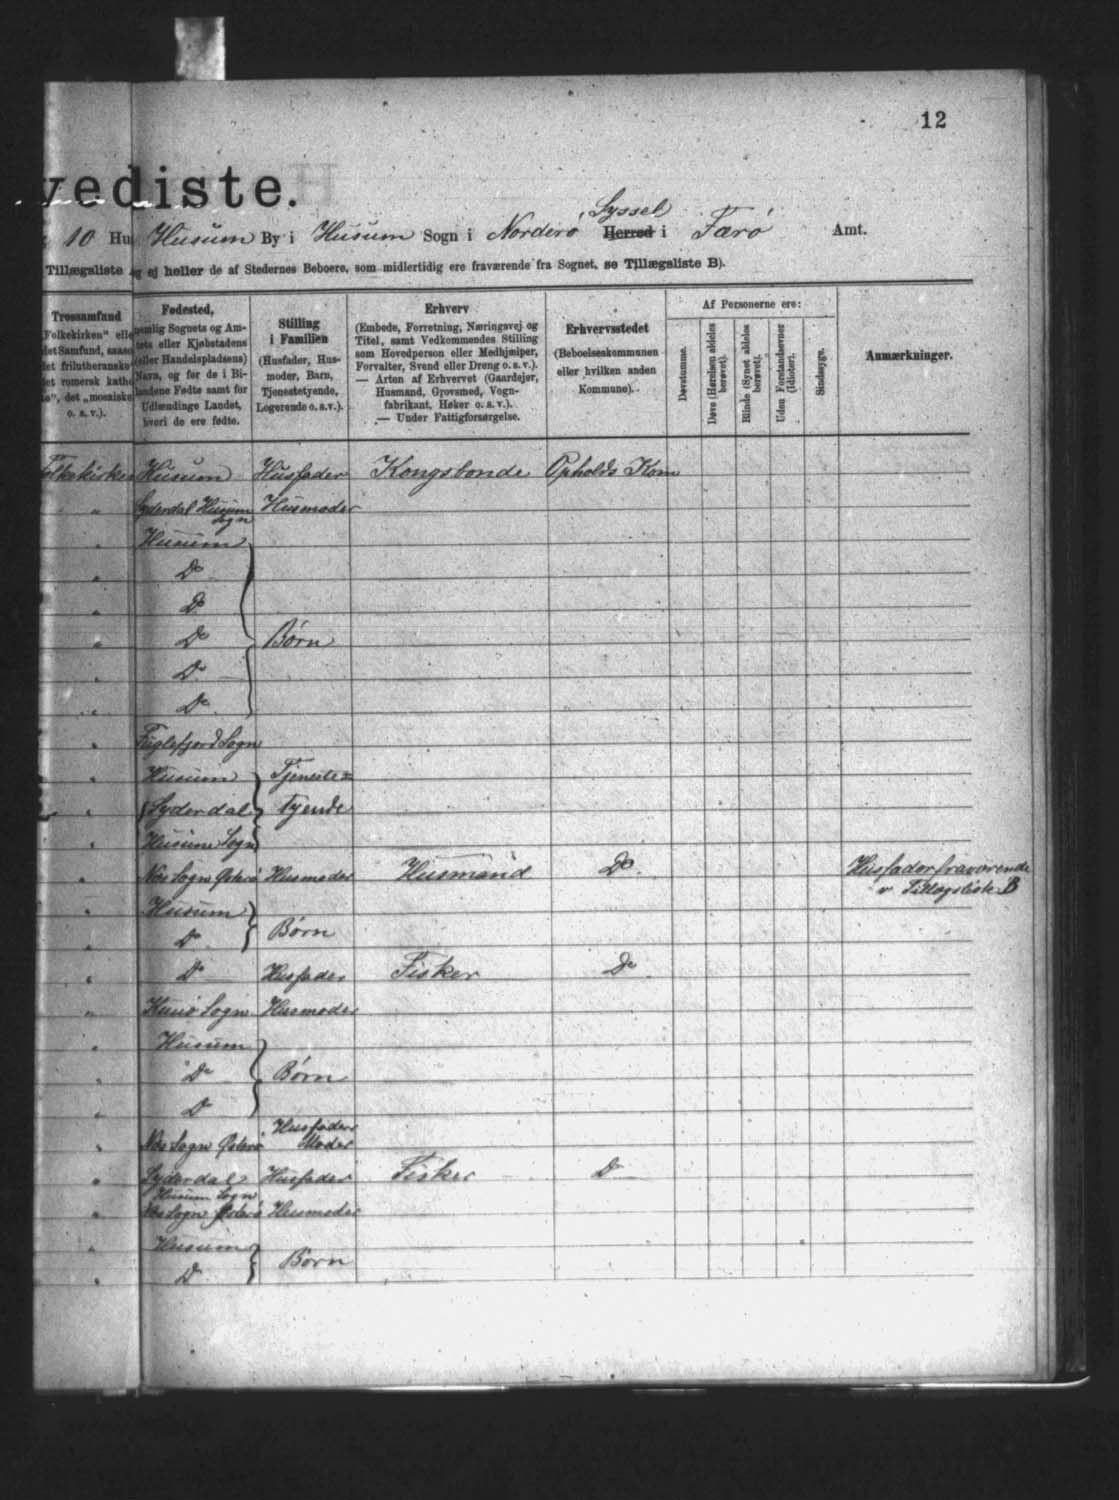 12
vediste.
10 Hu Husum By i Husum Sogn i Norderø Syssel Herred i Færø Amt.
Tillægsliste og ej heller de af Stedernes Beboere, som midlertidig ere fraværende fra Sognet, se Tillægsliste B).
Trossamfund
Folkekirken" elle
det Samfund, saaso
det frilutheranske
det romersk katho
e", det „mosaiske
o. s. v.).
Fødested,
nemlig Sognets og Am-
tets eller Kjøbstadens
(eller Handelspladsens)
Navn, og for de i Bi-
landene Fødte samt for
Udlændinge Landet,
hvori de ere fødte.
Stilling
i Familien
(Husfader, Hus-
moder, Barn,
Tjenestetyende,
Logerende o. s. v.).
Erhverv
(Embede, Forretning, Næringsvej og
Titel, samt Vedkommendes Stilling
som Hovedperson eller Medhjælper,
Forvalter, Svend eller Dreng o. s. v.).
— Arten af Erhvervet (Gaardejer,
Husmand, Grovsmed, Vogn-
fabrikant, Høker o. s. v.).
— Under Fattigforsørgelse.
Erhvervsstedet
(Beboelseskommunen
eller hvilken anden
Kommune).
Af Personerne ere:
Døvstumme.
Døve (Hørelsen aldeles
berøvet).
Blinde (Synet aldeles
berøvet).
Uden Forstandsevner
(Idioter).
Sindssyge.
Anmærkninger.
Folkekirken Husum Husfader Kongsbonde Opholds Kom
" Syderdal Husum Sogn Husmoder
" Husum
" Do
" Do
" Do Børn
" Do
" Do
" Fuglefjord Sogn
" Husum Tjeneste=
" Syderdal tyende
" Husum Sogn
" Nes Sogn Østerø Husmoder Husmand Do Husfader fraværende
v Tillægsliste B
" Husum
" Do Børn
" Do Husfader Fisker Do
" Kunø Sogn Husmoder
" Husum
" Do Børn
" Do
" Nes Sogn Østerø Husfaders Moder
" Syderdal Husfader Fisker Do
Husum Sogn
" Nes Sogn Østerø Husmoder
" Husum
" Do Børn